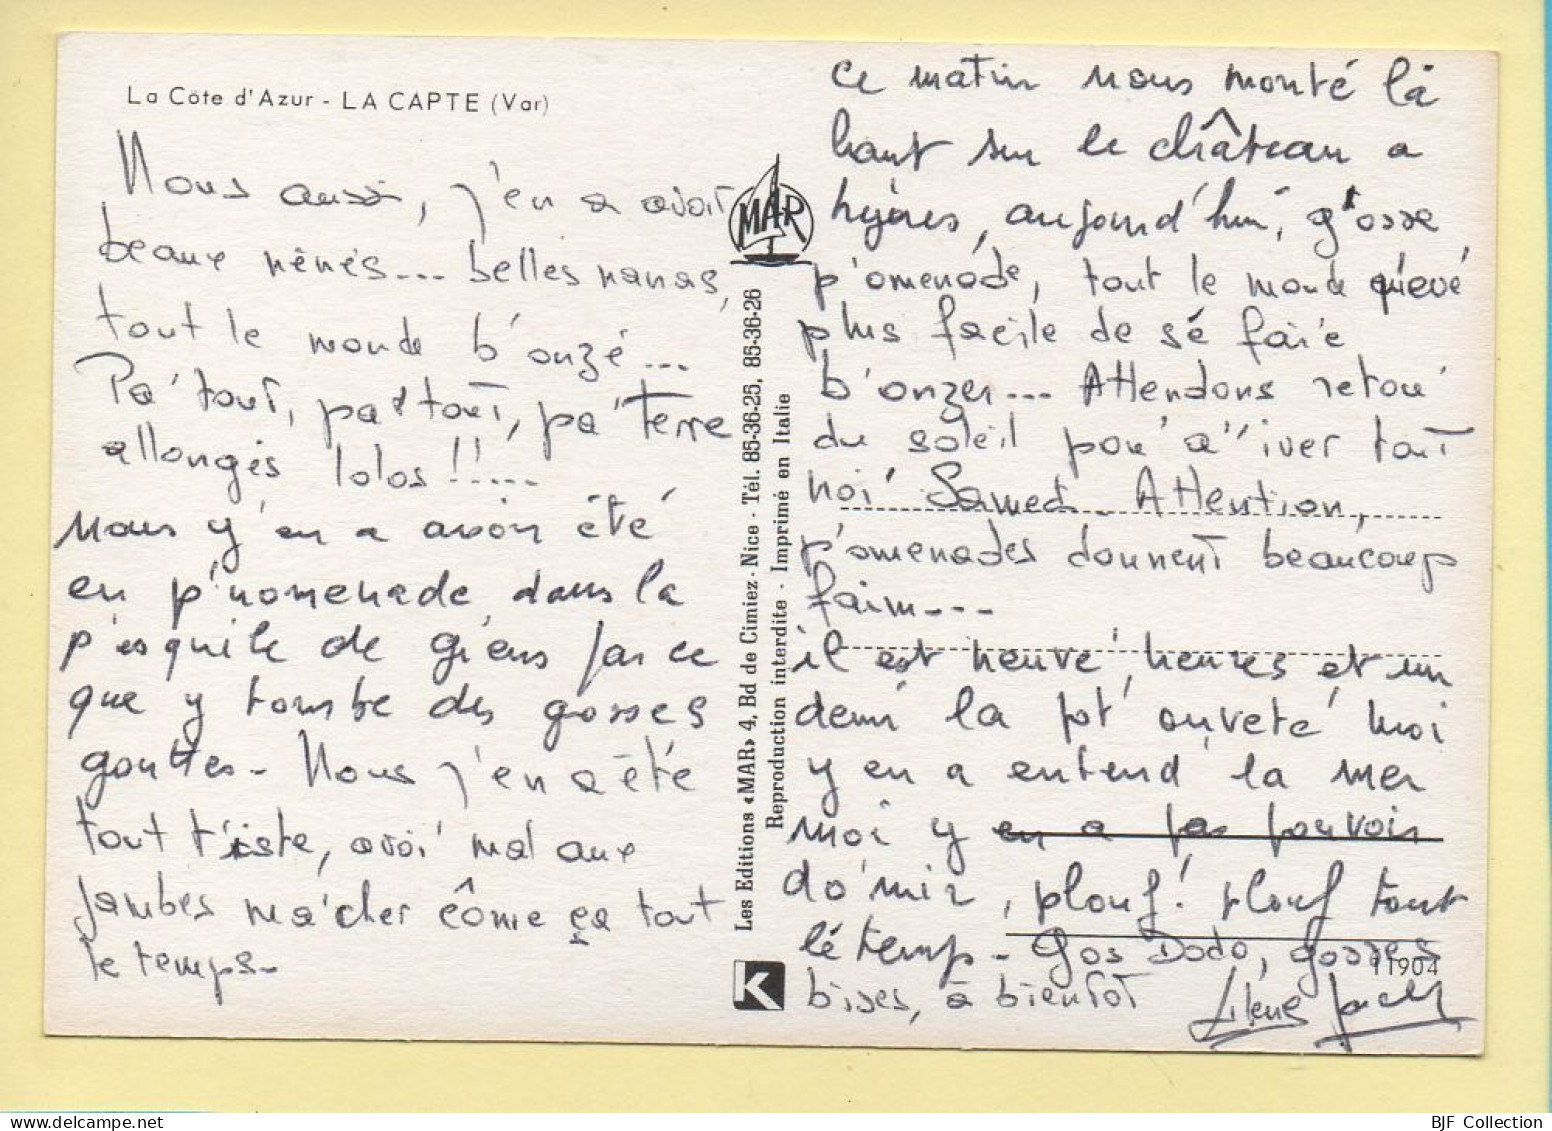 La Côte d'Azur - LA CAPTE (Var)
Nous aussi, j'en a avoir
beaux nénés... belles nanas,
tout le monde b'onzé...
Pa'tout, pa'tout, pa'terre
allongés lolos !!.....
nous y en a avoir été
en p'nomenade dans la
p'esquile de giens parce
que y tombe des gosses
gouttes - Nous j'en a été
tout t'iste, avoi' mal aux
jambes ma'cher côme ça tout
le temps.
ce matin nous monté là
haut sur le château a
hyères, aujourd'hui, g'osse
p'omenade, tout le monde quévé
plus facile de sé faire
b'onzer... Attendons retou'
du soleil pou' a''iver tout
noi' Samedi. Attention,
p'omenades donnent beaucoup
faim---
il est neuve' heures et un
demi la pot' ouveté moi
y en a entend' la mer
moi y en a pas pouvoir
do'mir, plouf! plouf tout
lé temp - Gos Dodo, gosses
bises, à bientot
Lilene
MAR
Les Editions «MAR» 4, Bd de Cimiez - Nice - Tél. 85-36-25, 85-36-26
Reproduction interdite - Imprimé en Italie
K
11904
BJF Collection